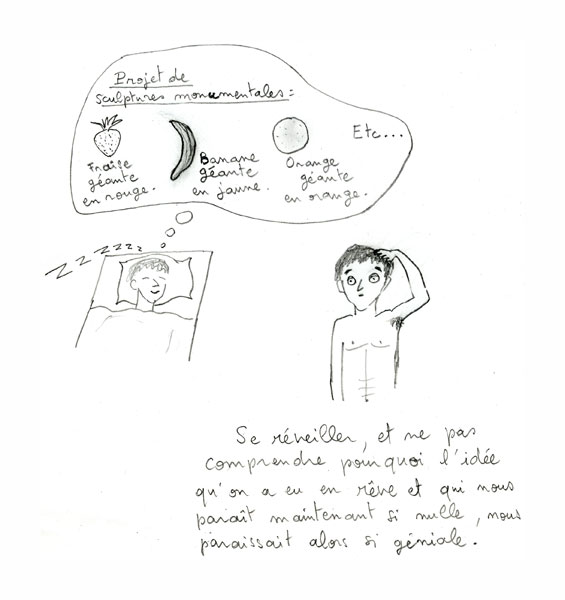 Projet de
sculptures monumentales :
Fraise
géante
en rouge.
Banane
géante
en jaune.
Orange
géante
en orange.
Etc...
ZZZZZZZZ
Se réveiller, et ne pas
comprendre pourquoi l'idée
qu'on a eu en rêve et qui nous
paraît maintenant si nulle, nous
paraissait alors si géniale.